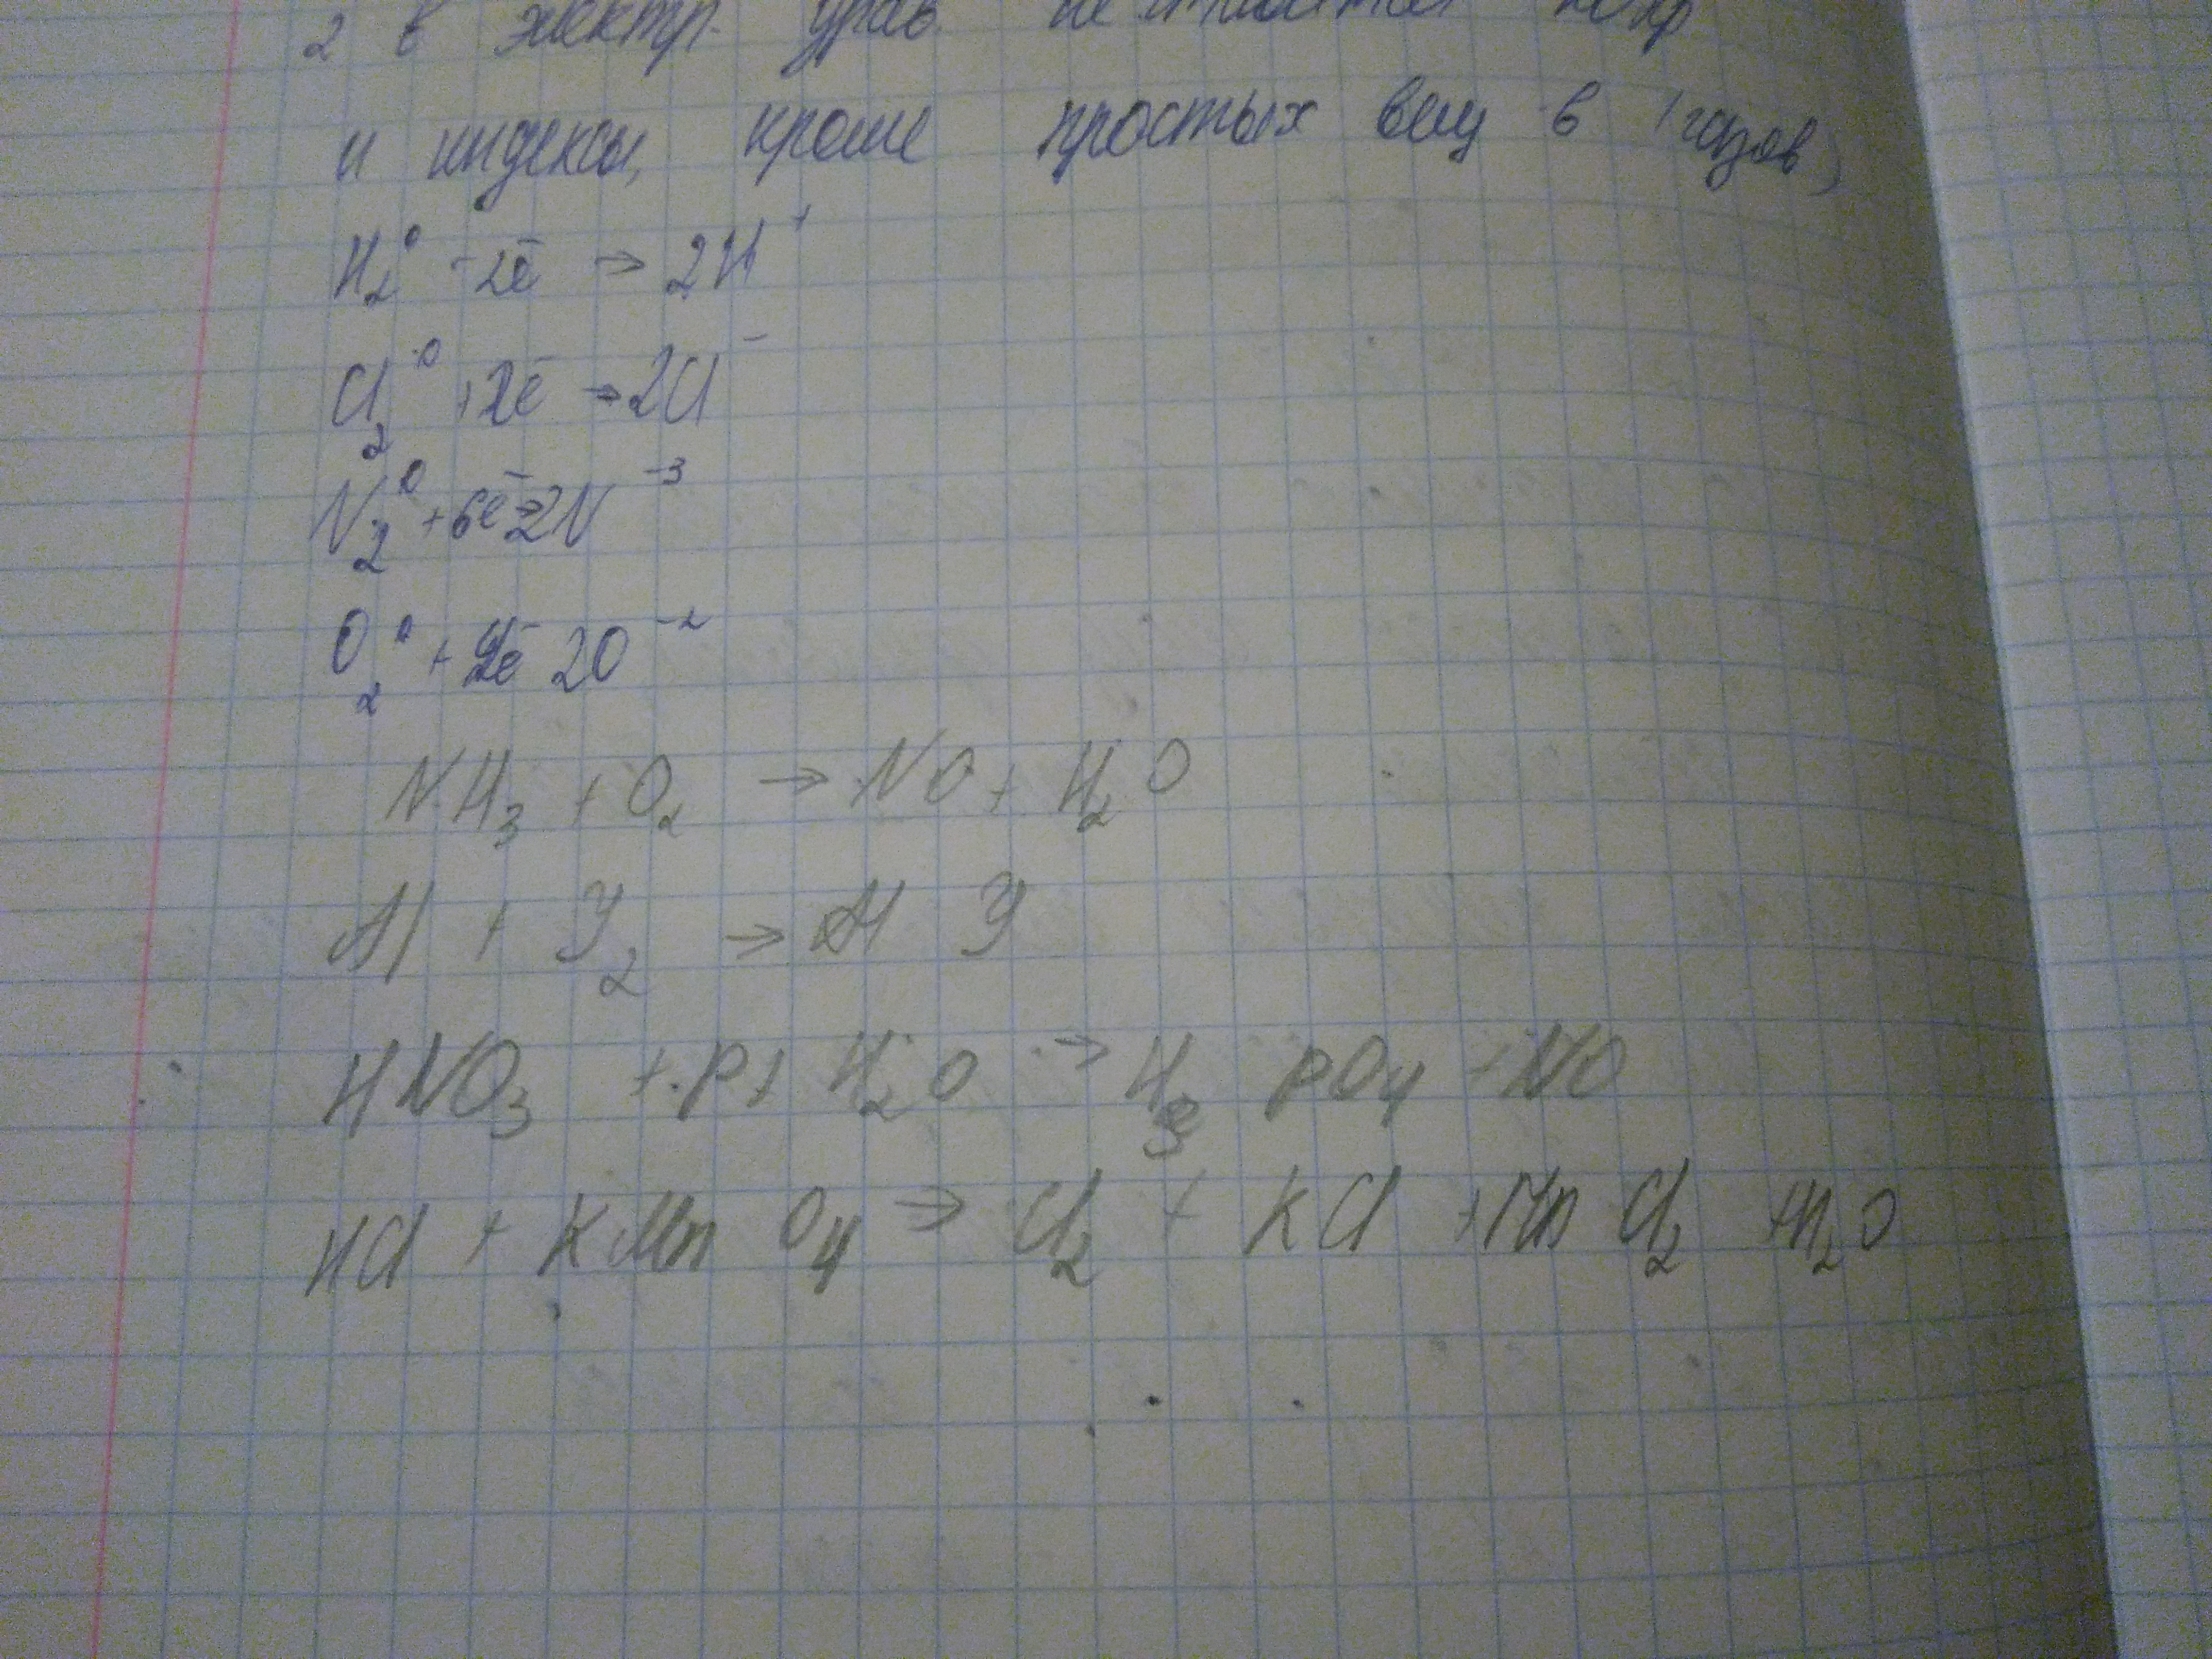 2 в электр. урав.
и индексы, кроме простых вещ в (газов)
H₂⁰ -2ē → 2H⁺
Cl₂⁰ +2ē → 2Cl⁻
N₂⁰ +6ē → 2N⁻³
O₂⁰ + ē 2O⁻²
NH₃ + O₂ → NO + H₂O
Al + J₂ → Al J
HNO₃ + P + H₂O → H₃ PO₄ + NO
HCl + KMnO₄ → Cl₂ + KCl + MnCl₂ + H₂O